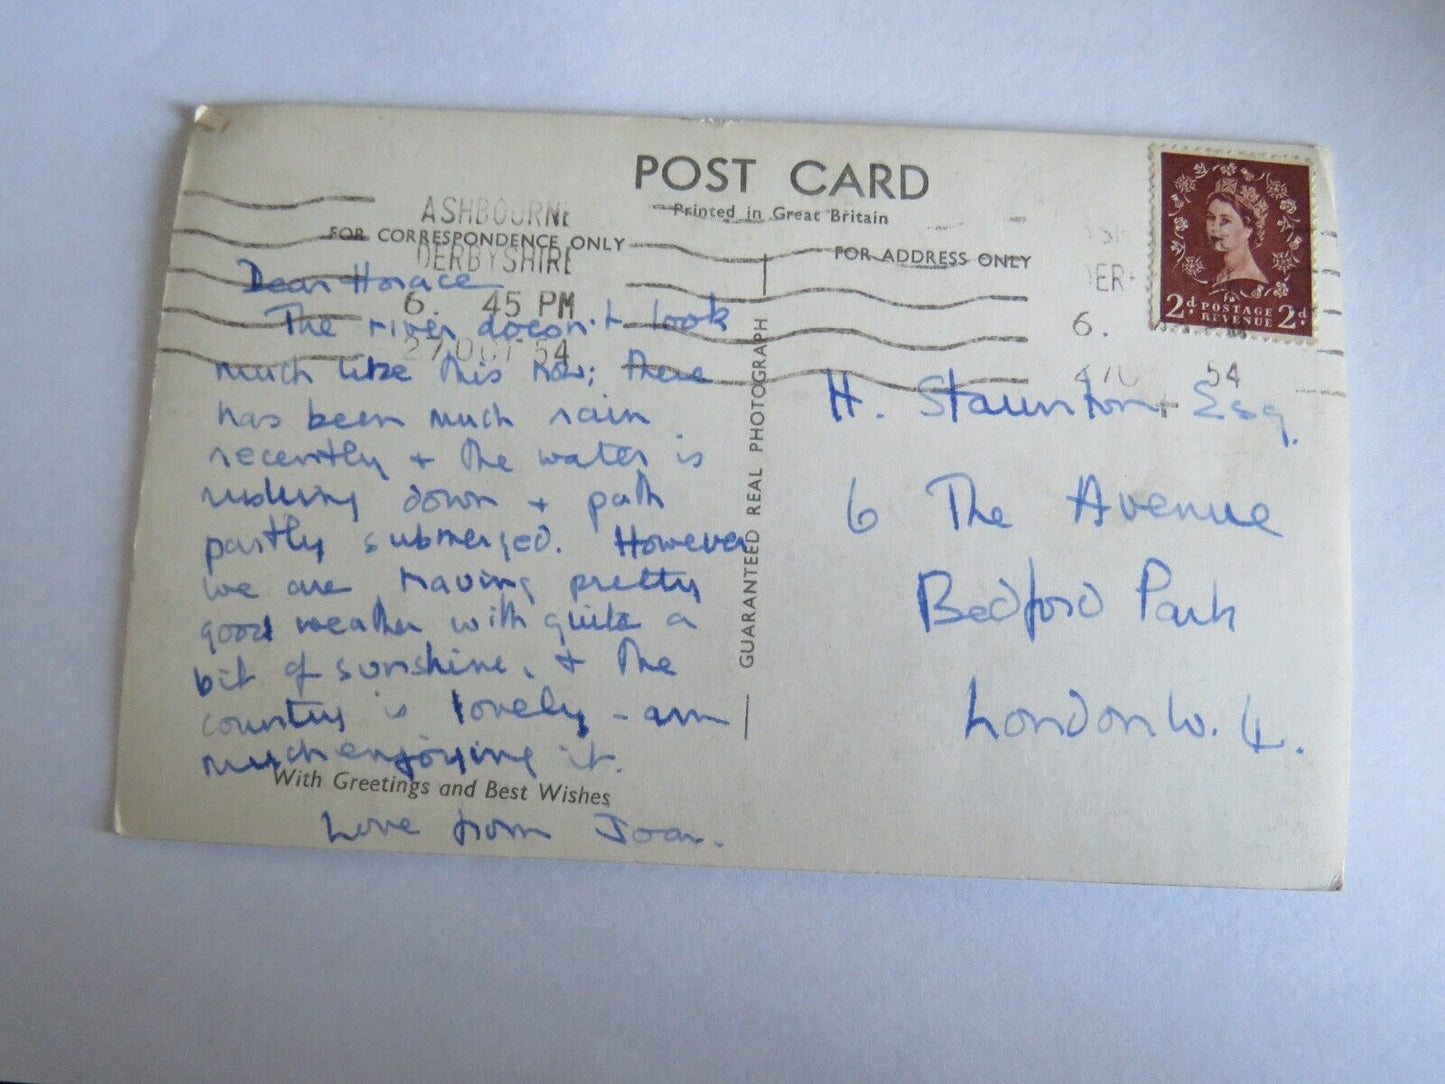 POST CARD
Printed in Great Britain
ASHBOURNE
DERBYSHIRE
6. 45 PM
27 OCT 54
FOR CORRESPONDENCE ONLY
Dear Horace
The river doesn't look
much like this now; there
has been much rain
recently + the water is
rushing down + path
partly submerged. However
we are having pretty
good weather with quite a
bit of sunshine, + the
country is lovely - am
much enjoying it.
With Greetings and Best Wishes
Love from Joan.
GUARANTEED REAL PHOTOGRAPH
FOR ADDRESS ONLY
2d. POSTAGE REVENUE 2d.
6.
54
H. Staunton Esq.
6 The Avenue
Bedford Park
London W. 4.